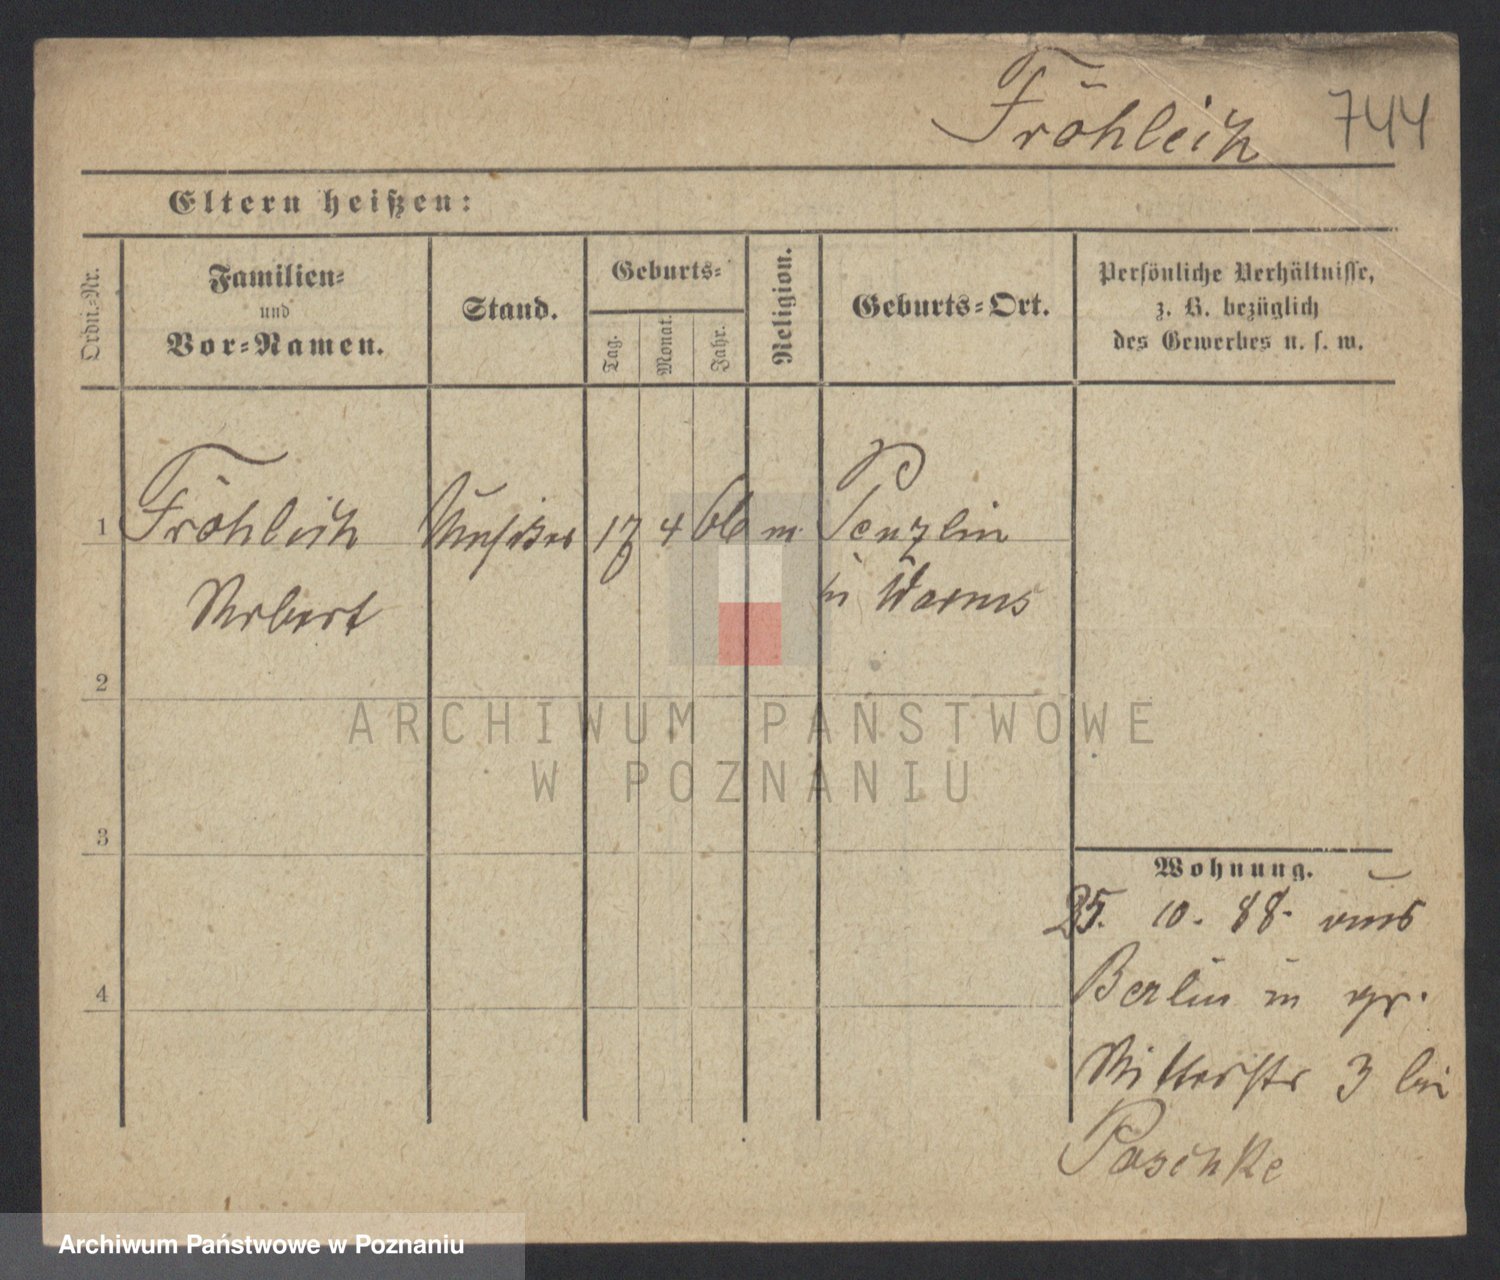 Fröhlich 744
Eltern heißen:
Ordn.-Nr.
Familien-
und
Vor-Namen.
Stand.
Geburts-
Tag.
Monat.
Jahr.
Religion.
Geburts-Ort.
Persönliche Verhältnisse,
z. B. bezüglich
des Gewerbes u. s. w.
1 Fröhlich Musiker 17 4 66 m Penzlin
in
2
3
4
Wohnung.
25. 10. 88. aus
Berlin in gr.
Ritterstr 3 bei
Paschke
ARCHIWUM PAŃSTWOWE
W POZNANIU
Archiwum Państwowe w Poznaniu